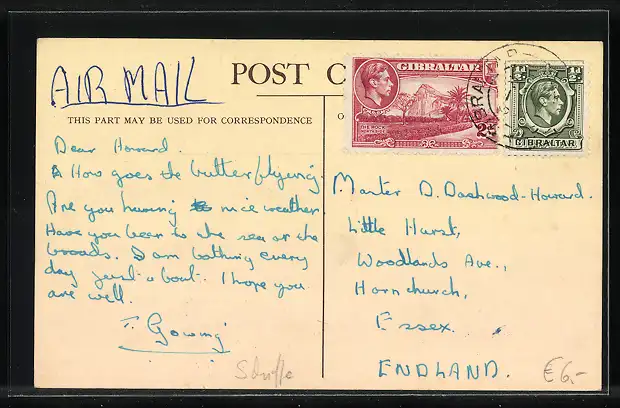 AIR MAIL
POST C
THIS PART MAY BE USED FOR CORRESPONDENCE
Dear Howard.
How goes the butterflying.
Are you having nice weather
Have you been to the sea or the
broads. I am bathing every
day just about. I hope you
are well.
Gowing
GIBRALTAR
THE ROCK
½ ½
GIBRALTAR
Master D. Dashwood-Howard.
Little Hurst,
Woodlands Ave.,
Hornchurch,
Essex.
ENDLAND.
€6,-